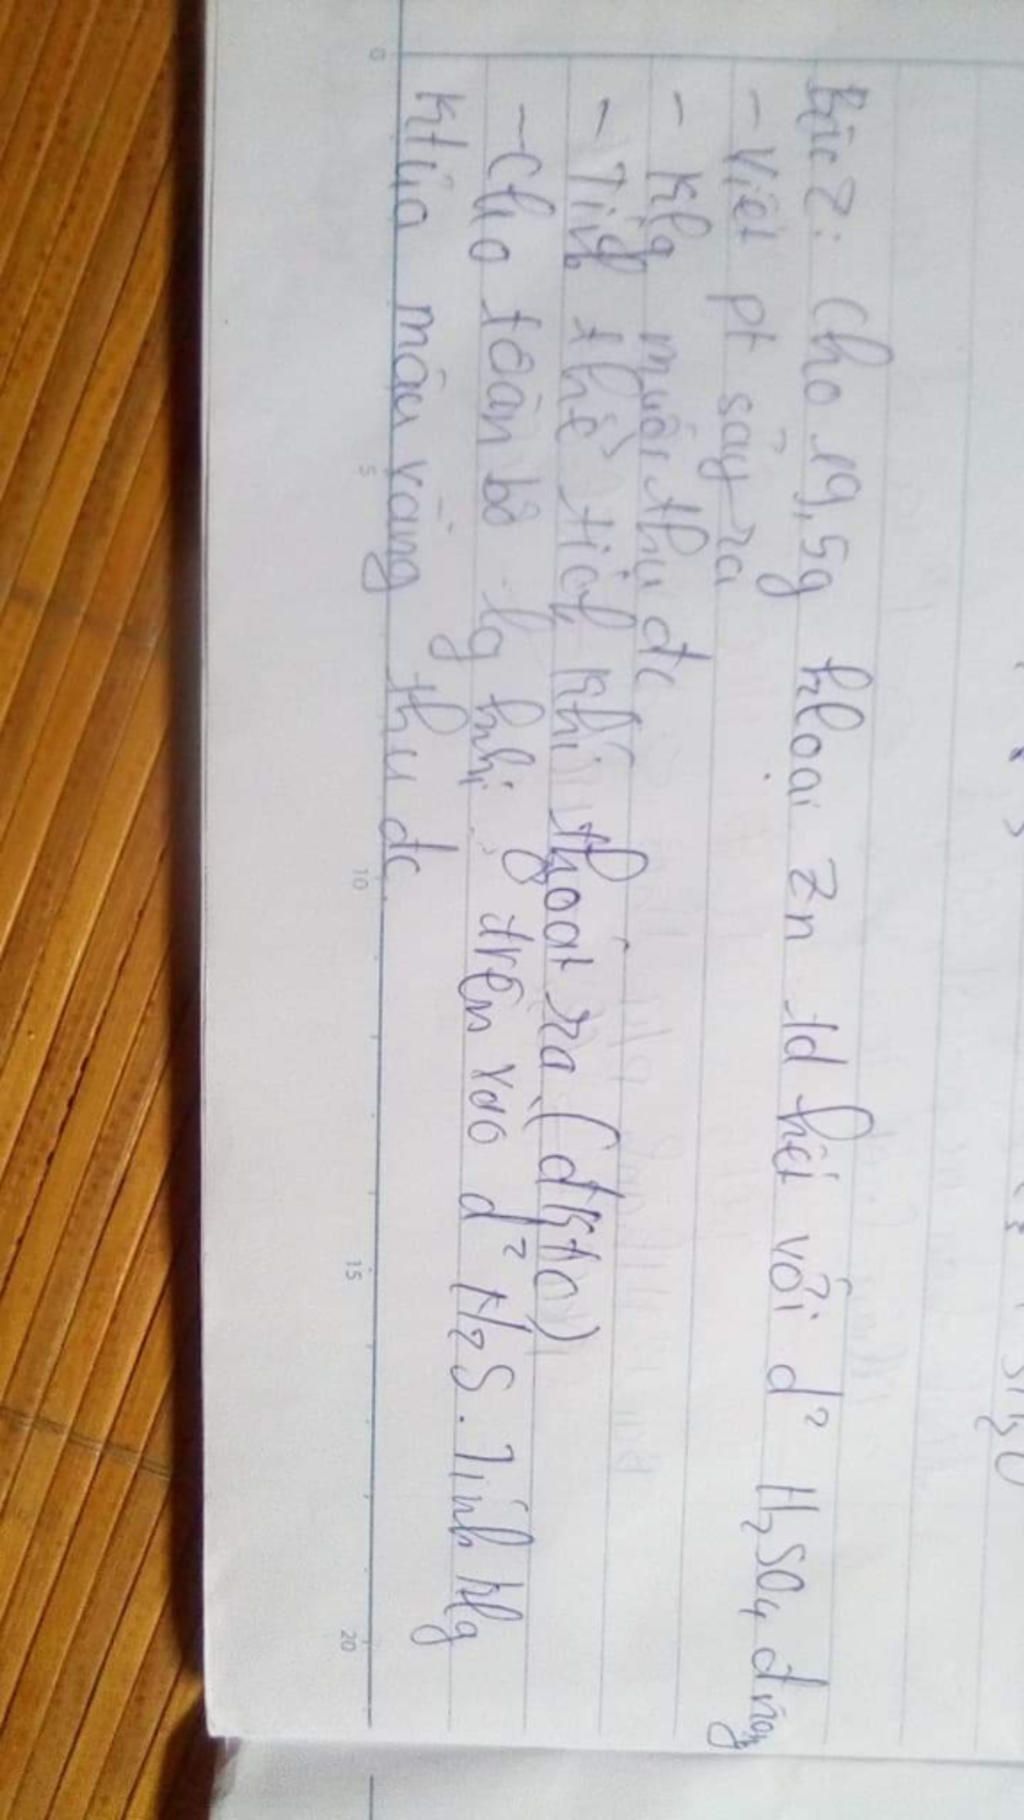 Bài 2: Cho 19,5g kloại Zn td hết với d² H₂SO₄ đ nóng
- Viết pt sảy ra
- klg muối thu đc
- Tính thể tích khí thoát ra (đktc)
- Cho toàn bộ lg khí trên vào d² H₂S. Tính klg
ktủa màu vàng thu đc
0
5
10
15
20